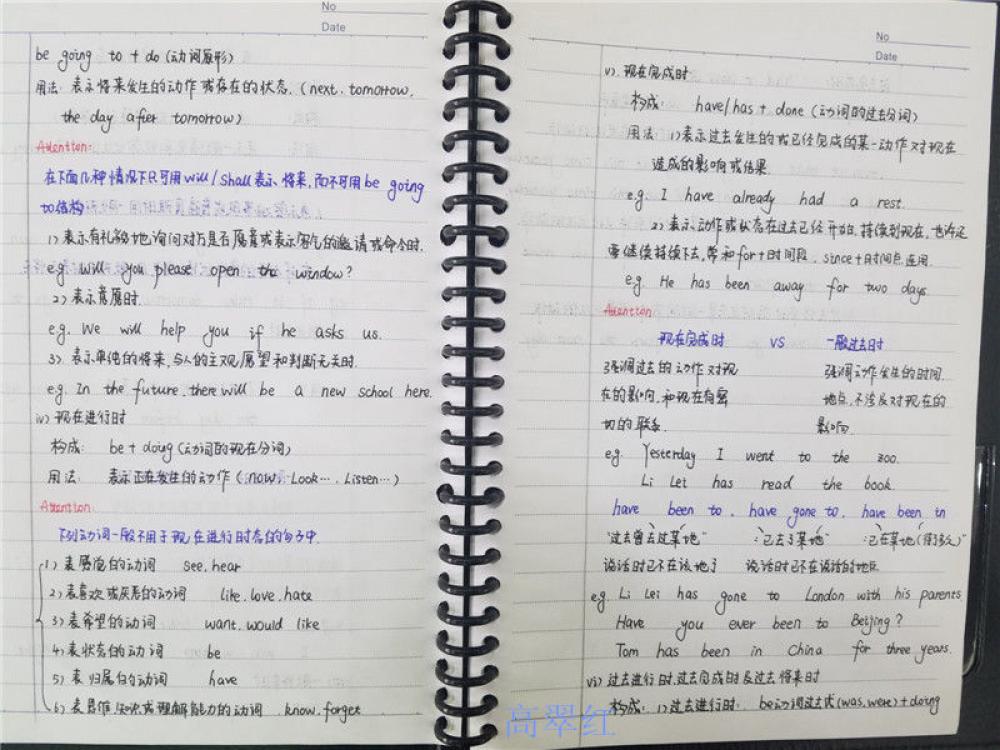 No
Date
be going to + do (动词原形)
用法: 表示将来发生的动作或存在的状态. (next. tomorrow.
the day after tomorrow)
Attention:
在下面几种情况下只可用will/shall表示将来,而不可用be going
to结构
1) 表示有礼貌地询问对方是否愿意或表示客气的邀请或命令时.
eg. Will you please open the window?
2) 表示意愿时.
eg. We will help you if he asks us.
3) 表示单纯的将来,与人的主观愿望和判断无关时.
eg. In the future, there will be a new school here.
iv) 现在进行时
构成: be + doing (动词的现在分词)
用法: 表示正在发生的动作 (now. Look… . Listen…)
Attention:
下列动词一般不用于现在进行时态的句子中.
1) 表感觉的动词 see. hear
2) 表喜欢或厌恶的动词 like. love. hate
3) 表希望的动词 want. would like
4) 表状态的动词 be
5) 表归属的动词 have
6) 表思维.知识或理解能力的动词. know. forget
No
Date
v) 现在完成时
构成: have/has + done (动词的过去分词)
用法: 1) 表示过去发生的或已经完成的某一动作对现在
造成的影响或结果.
e.g. I have already had a rest.
2) 表示动作或状态在过去已经开始.持续到现在.也许还
要继续持续下去.常和for+时间段. since+时间点连用.
e.g. He has been away for two days.
Attention:
现在完成时 VS 一般过去时
强调过去的动作对现 强调动作发生的时间.
在的影响,和现在有密 地点,不涉及对现在的
切的联系. 影响.
eg. Yesterday I went to the zoo.
Li Lei has read the book.
have been to. have gone to. have been in
"过去曾去过某地" "已去了某地" "已在某地(很久)"
说话时已不在该地了 说话时已不在说话的地点
e.g. Li Lei has gone to London with his parents
Have you ever been to Beijing?
Tom has been in China for three years.
vi) 过去进行时.过去完成时及过去将来时
构成: 1) 过去进行时: be动词过去式(was. were) + doing
高翠红